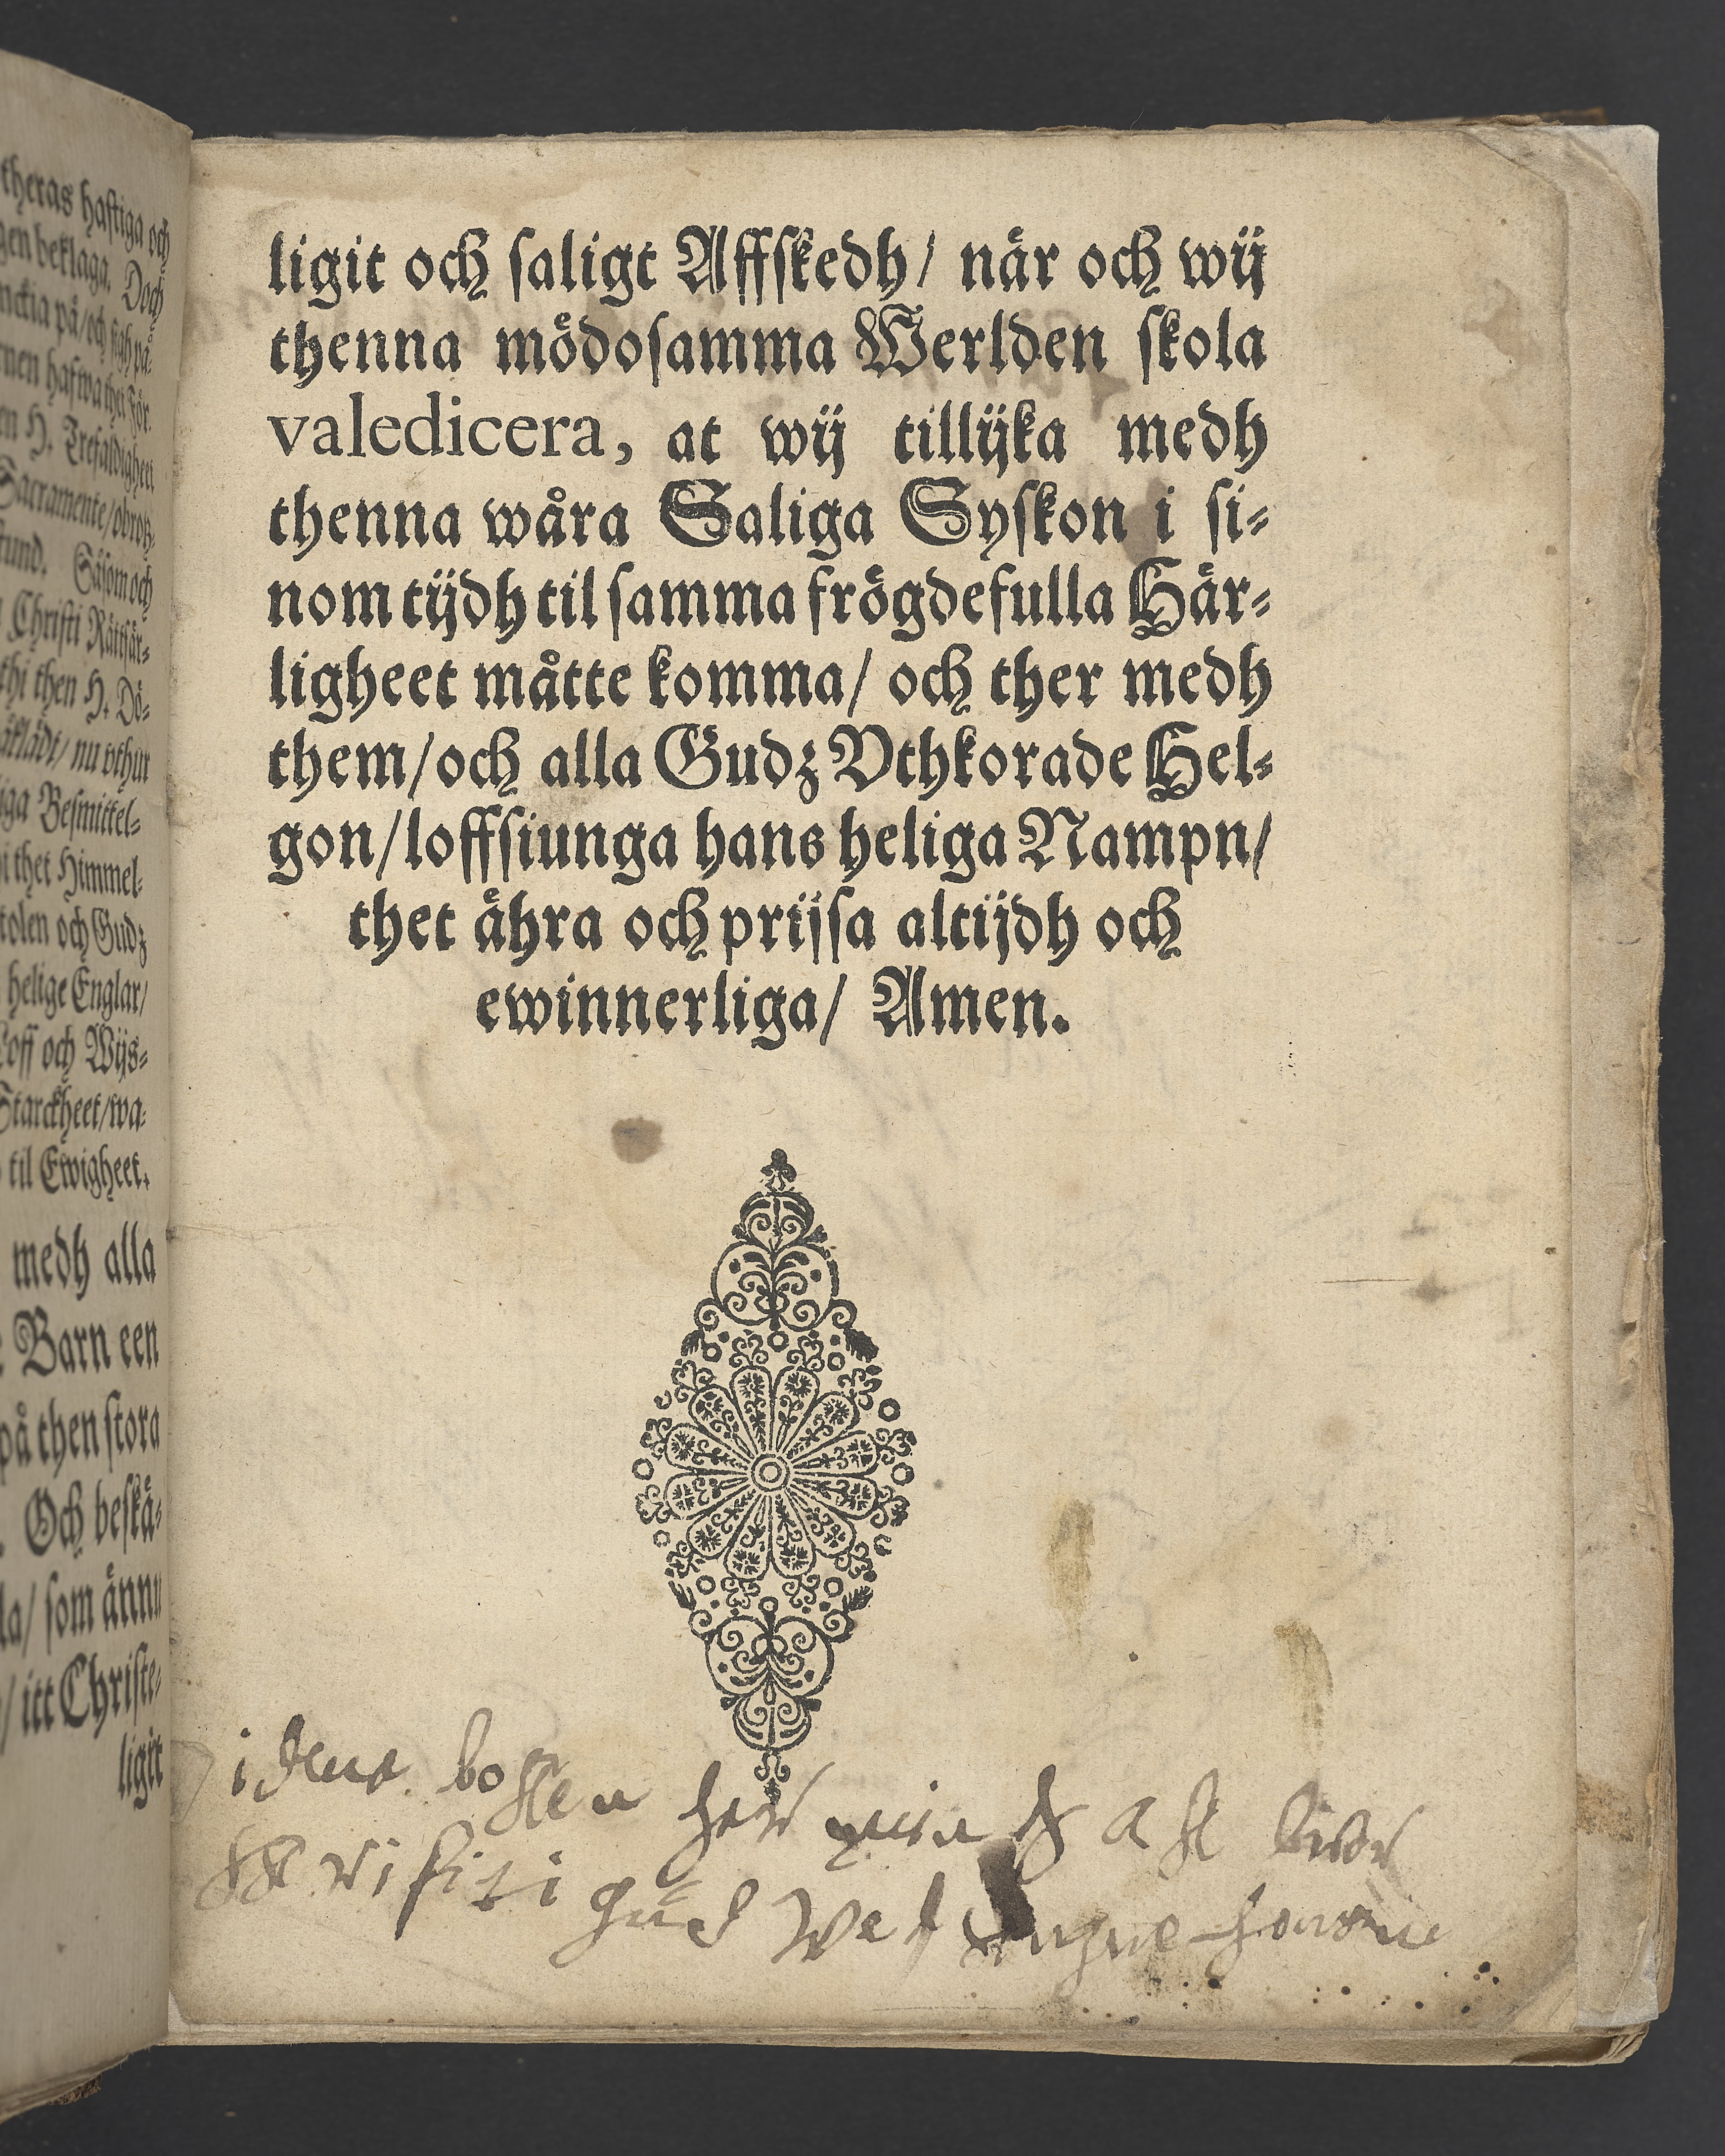 theras hastiga och
gen beklaga. Doch
nckia på/och sigh på
men hafwa thet För
en H. Trefaldigheet
Sacramente/obrotz-
fund. Såsom och
Christi Rättfär-
thi then H. Dö-
äklädt/ nu vthur
iga Besmittel-
i thet Himmel-
tolen och Gudz
helige Englar/
Loff och Wijs-
Starckheet/wa-
til Ewigheet.
medh alla
Barn een
på then stora
Och beskä-
la/ som ännu
/ itt Christe-
ligit
ligit och saligt Affskedh/ när och wij
thenna mödosamma Werlden skola
valedicera, at wij tillijka medh
thenna wåra Saliga Syskon i si-
nom tijdh til samma frögdefulla Här-
ligheet måtte komma/ och ther medh
them/och alla Gudz Vthkorade Hel-
gon/loffsiunga hans heliga Nampn/
thet ähra och prijsa altijdh och
ewinnerliga/ Amen.